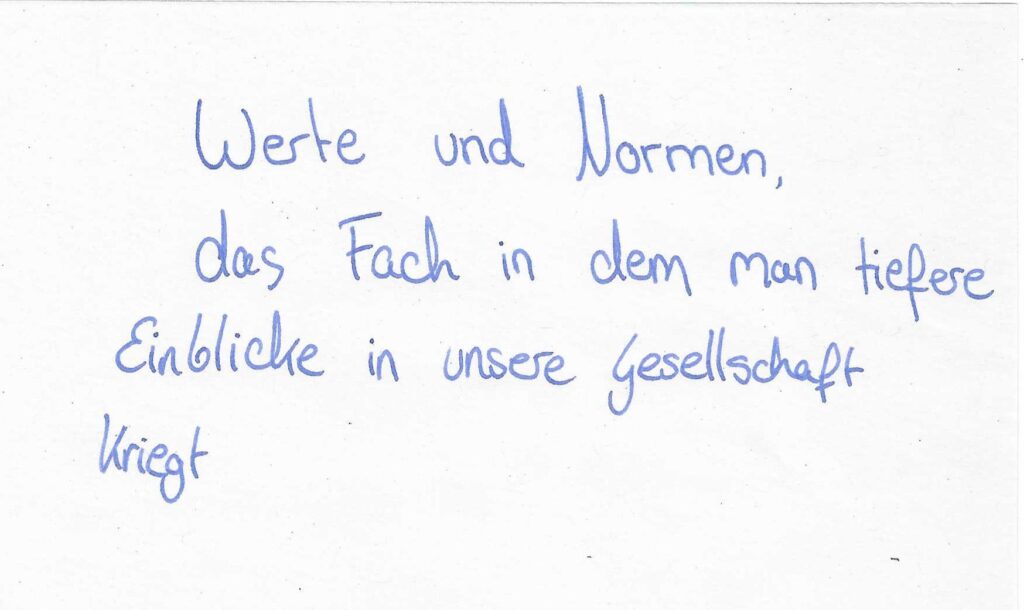 Werte und Normen,
das Fach in dem man tiefere
Einblicke in unsere Gesellschaft
kriegt